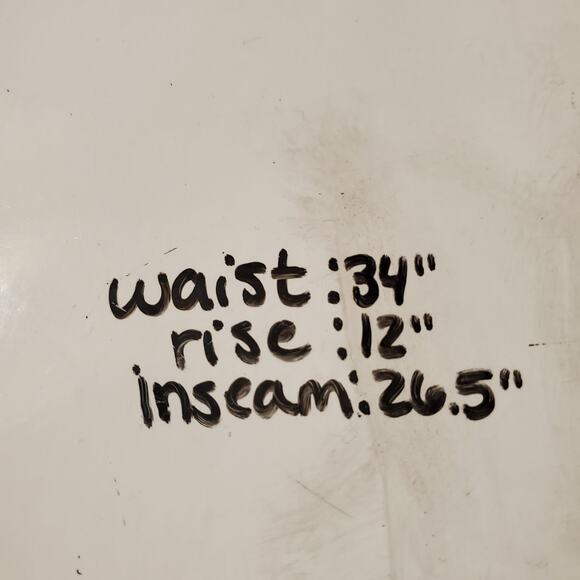 waist : 34"
rise : 12"
inseam : 26.5"